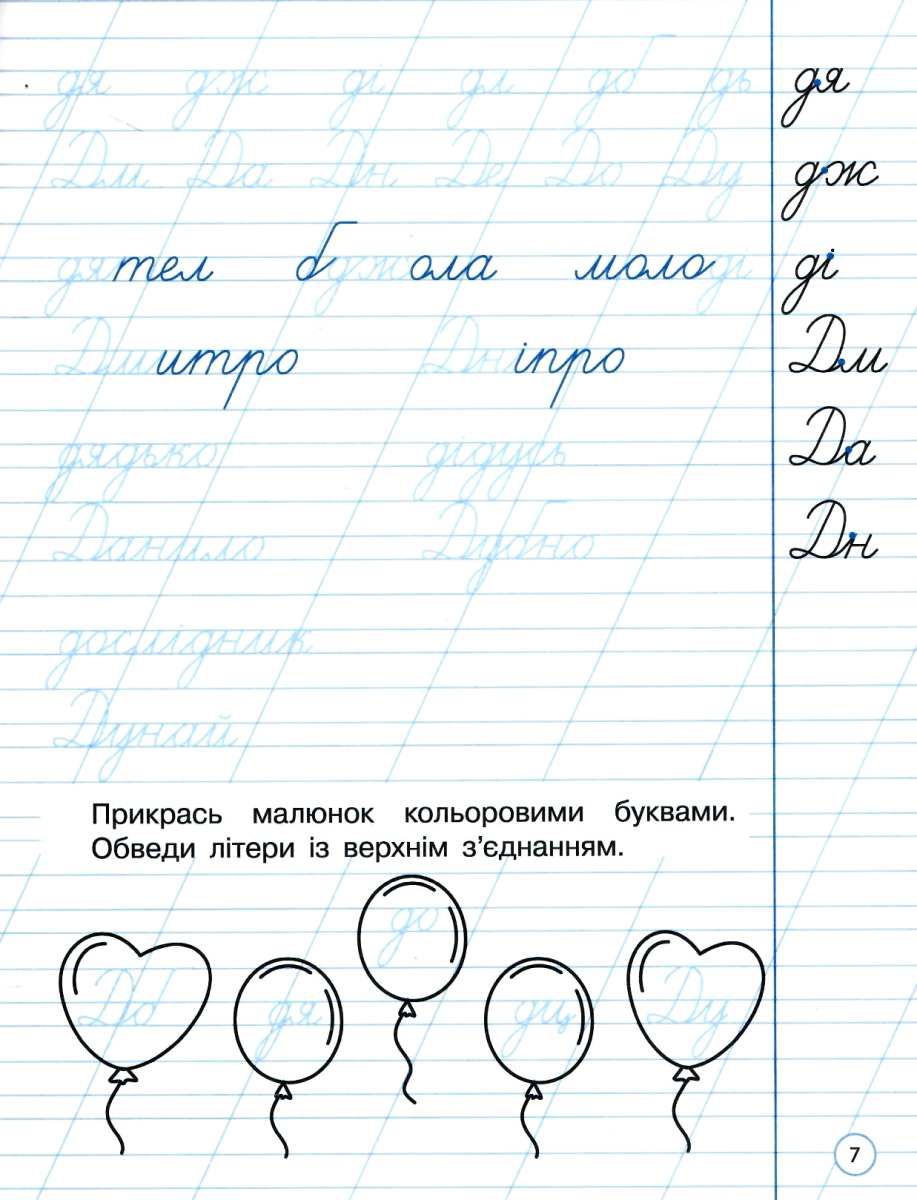 дя дж ді дл дб дь дя
Дм Да Дн Де До Ду дж
дятел бджола молоді ді
Дмитро Дніпро Дм
дядько дідусь Да
Данило Дубно Дн
дослідник
Дунай
Прикрась малюнок кольоровими буквами.
Обведи літери із верхнім з’єднанням.
до
До дя дщ Ду
7